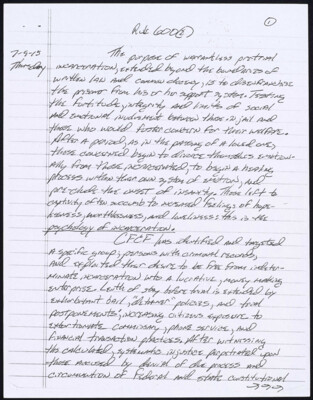 ①
Rule 600(E)
7-9-15
Thursday
The purpose of warrantless pretrial
incarceration, extended beyond the boundaries of
written law and common decency, is to disenfranchise
the prisoner from his or her support system. Testing
the fortitude, integrity and limits of social
and emotional involvement between those in jail and
those who would foster concern for their welfare.
After a period, as in the passing of a loved one,
those concerned begin to divorce themselves emotion-
ally from those incarcerated, to begin a healing
process within their own system of emotion, and
preclude the onset of insanity. Those left to
captivity often succumb to increased feelings of hope-
lessness, worthlessness, and loneliness; this is the
psychology of incarceration.
CFCF has identified and targeted
a specific group; persons with criminal records,
and exploited their desire to be free from indeter-
minate incarceration into a lucrative, money making
enterprise. Length of stay before trial is extended by
exhorbitant bail, "detainer" policies, and trial
postponements, increasing citizens exposure to
extortionate commissary, phone service, and
financial transaction practices. After witnessing
the calculated, systematic injustice perpetrated upon
those accused by denial of due process and
circumvention of Federal and state constitutional